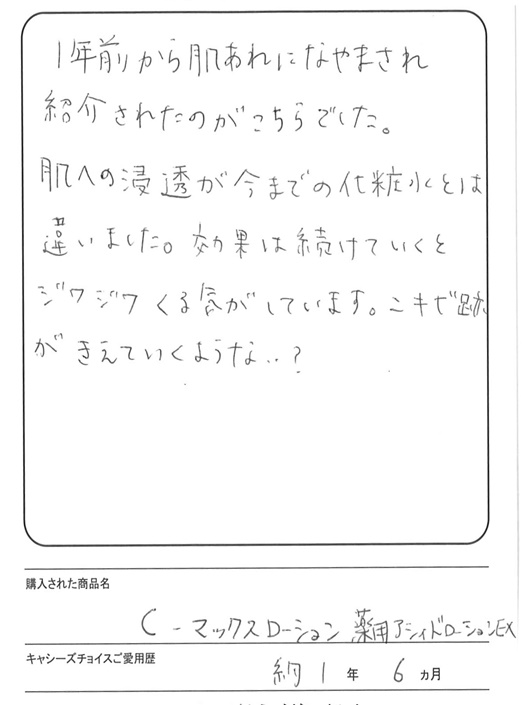 1年前から肌あれになやまされ
紹介されたのがこちらでした。
肌への浸透が今までの化粧水とは
違いました。効果は続けていくと
ジワジワくる感がしています。ニキビ跡
がきえていくような..?
購入された商品名
C-マックスローション 薬用アシィドローションEX
キャシーズチョイスご愛用歴
約1年 6ヵ月